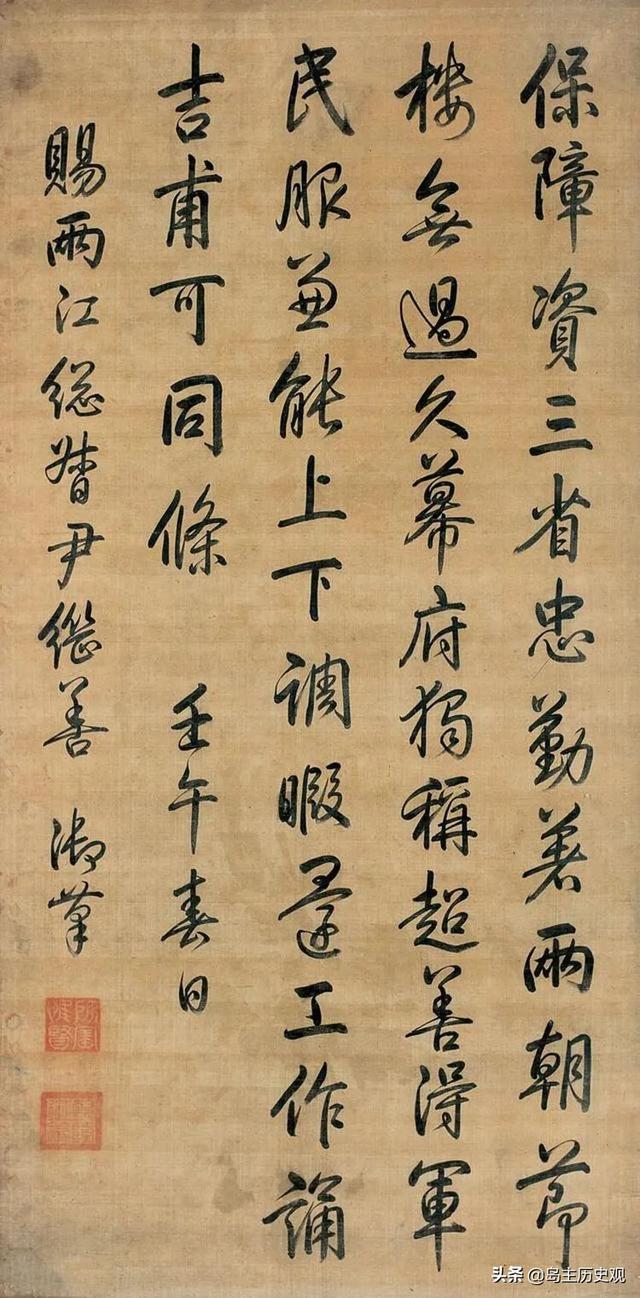 保障資三省忠勤著兩朝節
樓無過久幕府獨稱超善得軍
民服兼能上下調暇還工作誦
吉甫可同條 壬午春日
賜兩江總督尹繼善 御筆
头条 @岛主历史观